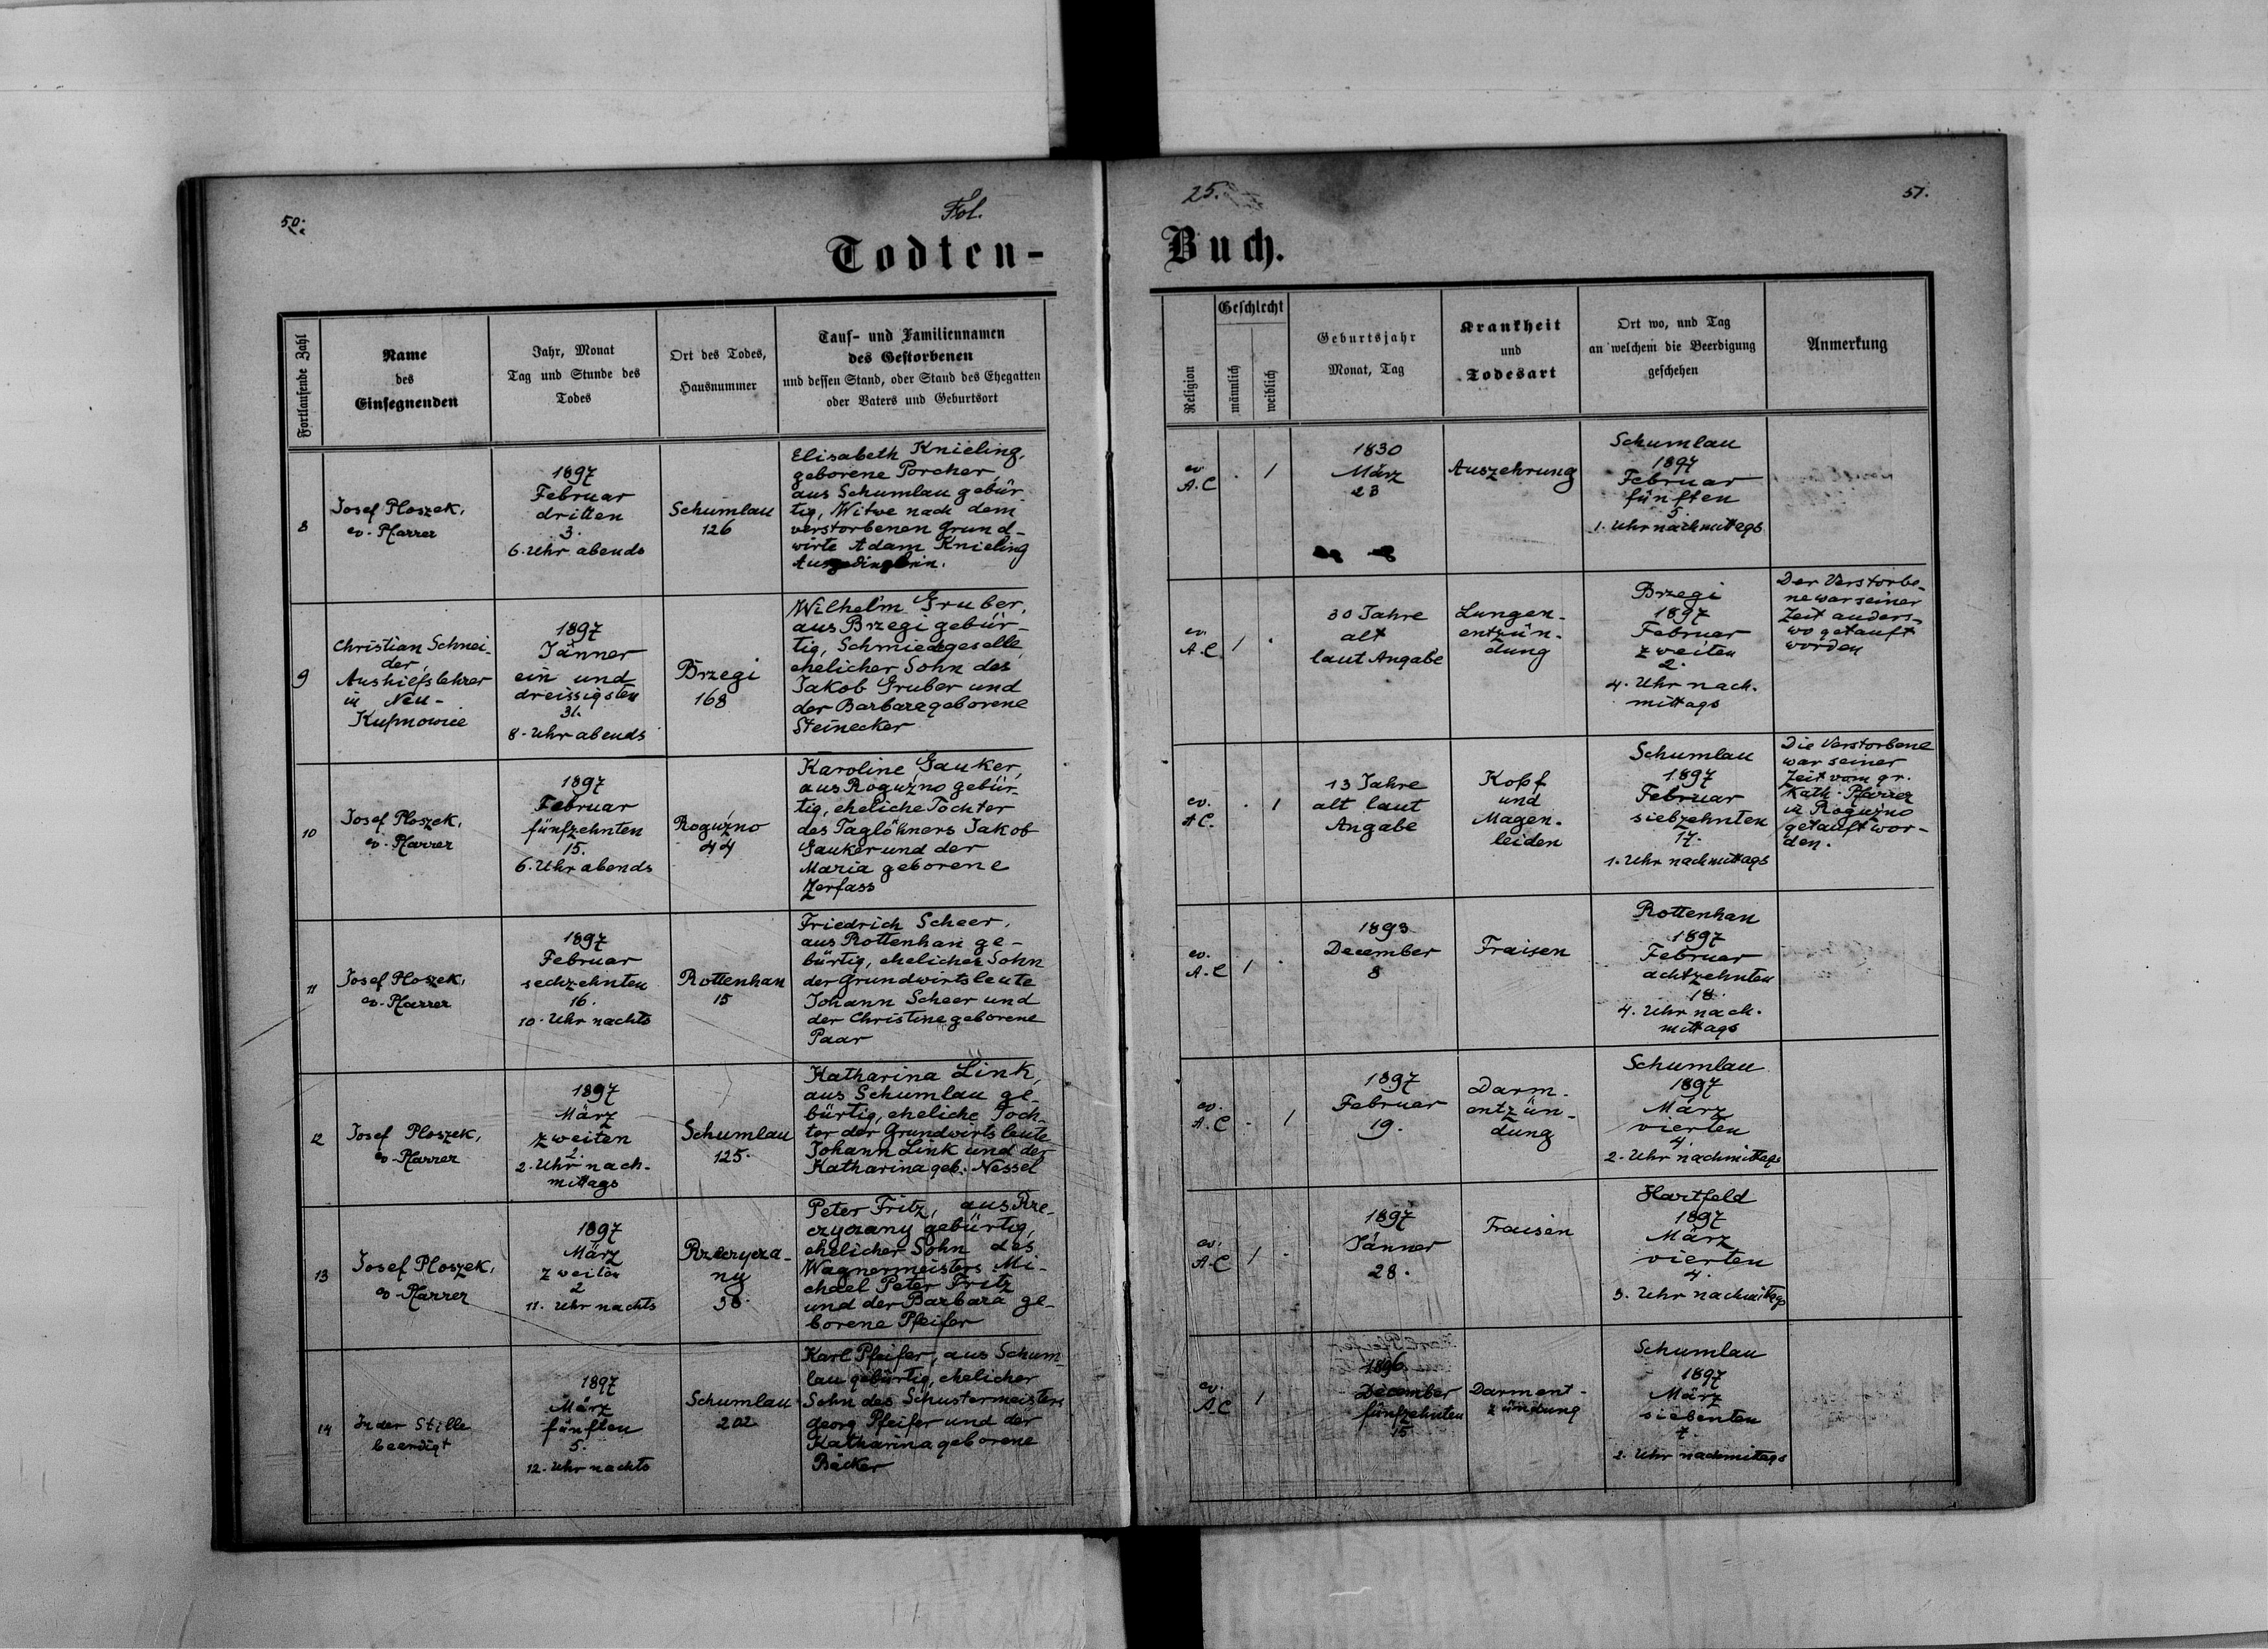 50.
Fol.
Todten-
Fortlaufende Zahl
Name
des
Einsegnenden
Jahr, Monat
Tag und Stunde des
Todes
Ort des Todes,
Hausnummer
Tauf- und Familiennamen
des Gestorbenen
und dessen Stand, oder Stand des Ehegatten
oder Vaters und Geburtsort
8
Josef Ploszek,
ev. Pfarrer
1897
Februar
dritten
3.
6. Uhr abends
Schumlau
126
Elisabeth Knieling,
geborene Porcher,
aus Schumlau gebür-
tig, Witwe nach dem
verstorbenen Grund-
wirte Adam Knieling
Ausgedinglerin.
9
Christian Schnei-
der,
Aushilfslehrer
in Neu-
Kupnowice
1897
Jänner
ein und
dreissigsten
31.
8. Uhr abends
Brzegi
168
Wilhelm Gruber,
aus Brzegi gebür-
tig, Schmiedgeselle,
ehelicher Sohn des
Jakob Gruber und
der Barbara geborene
Steinecker
10
Josef Ploszek,
ev. Pfarrer
1897
Februar
fünfzehnten
15.
6. Uhr abends
Roguźno
44
Karoline Gauker,
aus Roguźno gebür-
tig, eheliche Tochter
des Taglöhners Jakob
Gauker und der
Maria geborene
Zerfass
11
Josef Ploszek,
ev. Pfarrer
1897
Februar
sechzehnten
16.
10. Uhr nachts
Rottenhan
15
Friedrich Scheer,
aus Rottenhan ge-
bürtig, ehelicher Sohn
der Grundwirtsleute
Johann Scheer und
der Christine geborene
Paar
12
Josef Ploszek,
ev. Pfarrer
1897
März
zweiten
2.
2. Uhr nach-
mittags
Schumlau
125.
Katharina Link,
aus Schumlau ge-
bürtig, eheliche Toch-
ter der Grundwirtsleute
Johann Link und der
Katharina geb. Nessel
13
Josef Ploszek,
ev. Pfarrer
1897
März
zweiten
2
11. Uhr nachts
Rzeczycza-
ny
58.
Peter Fritz, aus Rze-
czyczany gebürtig,
ehelicher Sohn des
Wagnermeisters Mi-
chael Peter Fritz
und der Barbara ge-
borene Pfeifer
14
In der Stille
beerdigt
1897
März
fünften
5.
12. Uhr nachts
Schumlau
202
Karl Pfeifer, aus Schum-
lau gebürtig, ehelicher
Sohn des Schustermeisters
Georg Pfeifer und der
Katharina geborene
Bäcker
25.
51.
Buch.
Religion
Geschlecht
männlich
weiblich
Geburtsjahr
Monat, Tag
Krankheit
und
Todesart
Ort wo, und Tag
an welchem die Beerdigung
geschehen
Anmerkung
ev.
A.C
. 1
1830
März
23
Auszehrung
Schumlau
1897
Februar
fünften
5.
1. Uhr nachmittags
ev.
A.C
1 .
30 Jahre
alt
laut Angabe
Lungen-
entzün-
dung
Brzegi
1897
Februar
zweiten
2.
4. Uhr nach-
mittags
Der Verstorbe-
ne war seiner
Zeit anders-
wo getauft
worden
ev.
A C.
. 1
13 Jahre
alt laut
Angabe
Kopf
und
Magen-
leiden
Schumlau
1897
Februar
siebzehnten
17.
1. Uhr nachmittags
Die Verstorbene
war seiner
Zeit vom gr.
Kath. Pfarrer
in Roguźno
getauft wor-
den.
ev.
A.C
1 .
1893
December
8
Fraisen
Rottenhan
1897
Februar
achtzehnten
18.
4. Uhr nach-
mittags
ev.
A.C
. 1
1897
Februar
19.
Darm-
entzün-
dung
Schumlau
1897
März
vierten
4.
2. Uhr nachmittags
ev.
A.C
1 .
1897
Jänner
28.
Fraisen
Hartfeld
1897
März
vierten
4.
3. Uhr nachmittags
ev.
A.C
1 .
1896
December
fünfzehnten
15
Darment-
zündung
Schumlau
1897
März
siebenten
7.
2. Uhr nachmittags